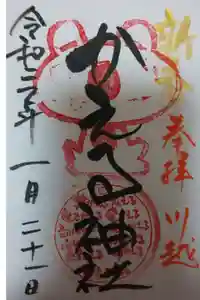 奉拝 川越
かえる神社
令和二年 一月 二十一日